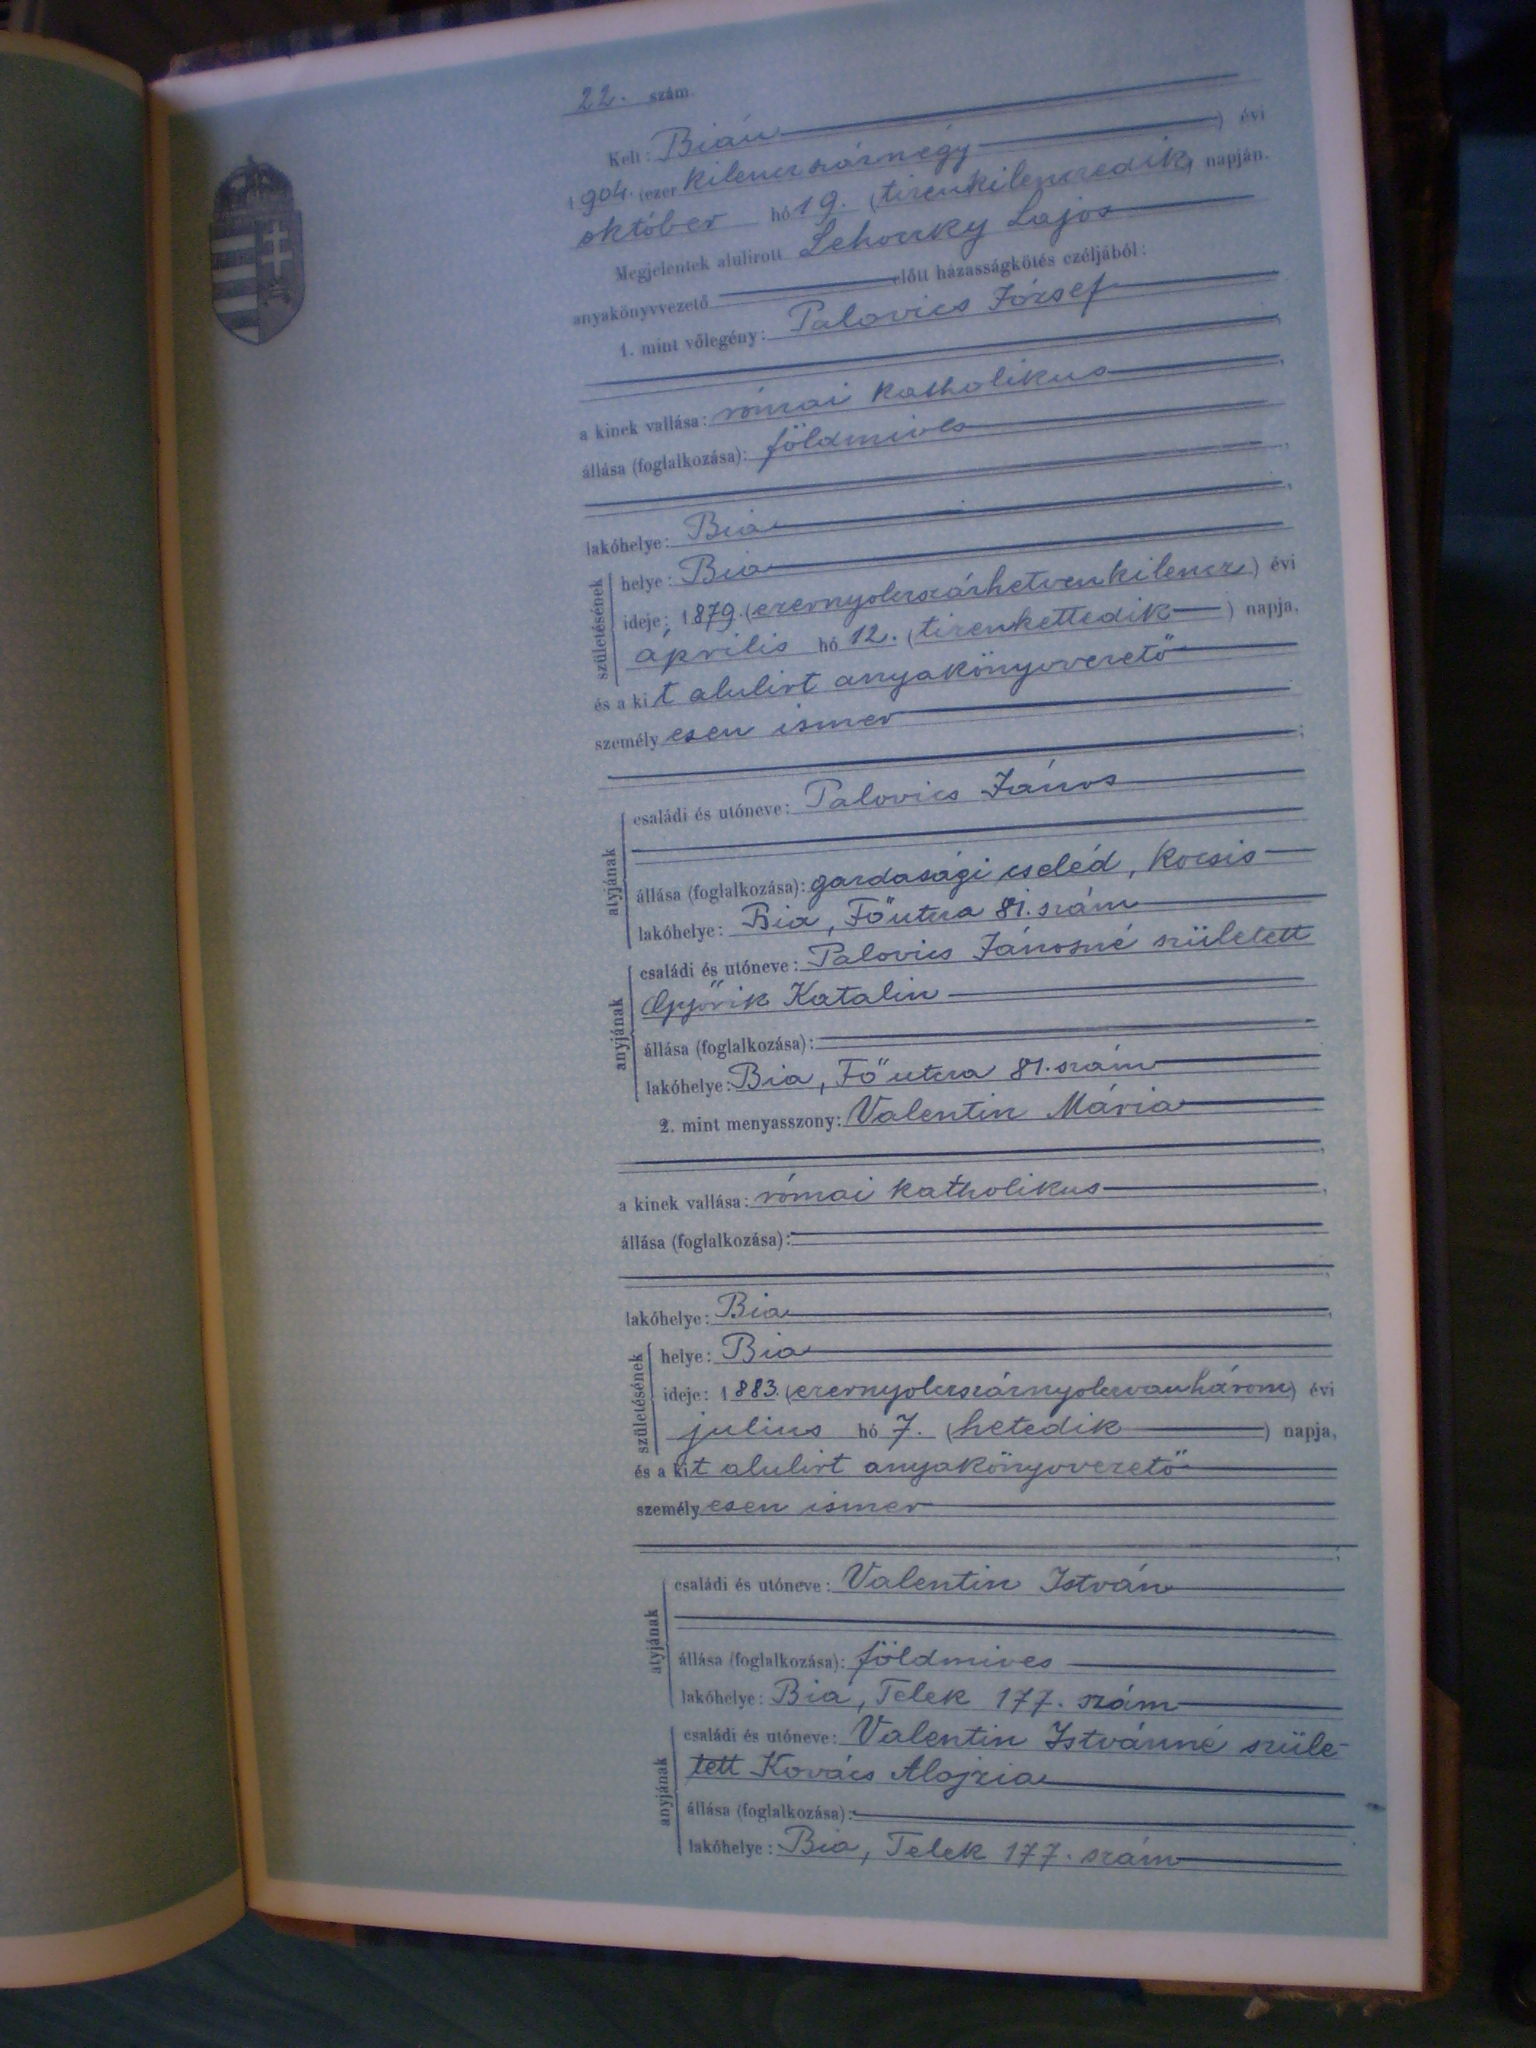 22. szám.
Kelt: Bián
1904. (ezer kilenczszáznégy ) évi
október hó 19. (tizenkilenczedik) napján.
Megjelentek alulirott Lehoczky Lajos
anyakönyvvezető előtt házasságkötés czéljából:
1. mint vőlegény: Palovics József
a kinek vallása: római katholikus
állása (foglalkozása): földmives
lakóhelye: Bia
születésének
helye: Bia
ideje: 1879. (ezernyolczszázhetvenkilencz) évi
április hó 12. (tizenkettedik ) napja,
és a kit alulirt anyakönyvvezető
személyesen ismer
atyjának
családi és utóneve: Palovics János
állása (foglalkozása): gazdasági cseléd, kocsis
lakóhelye: Bia, Főutcza 81. szám
anyjának
családi és utóneve: Palovics Jánosné született
Győrik Katalin
állása (foglalkozása):
lakóhelye: Bia, Főutcza 81. szám
2. mint menyasszony: Valentin Mária
a kinek vallása: római katholikus
állása (foglalkozása):
lakóhelye: Bia
születésének
helye: Bia
ideje: 1883. (ezernyolczszáznyolczvanhárom) évi
julius hó 7. (hetedik ) napja,
és a kit alulirt anyakönyvvezető
személyesen ismer
atyjának
családi és utóneve: Valentin István
állása (foglalkozása): földmives
lakóhelye: Bia, Telek 177. szám
anyjának
családi és utóneve: Valentin Istvánné szüle-
tett Kovács Alojzia
állása (foglalkozása):
lakóhelye: Bia, Telek 177. szám